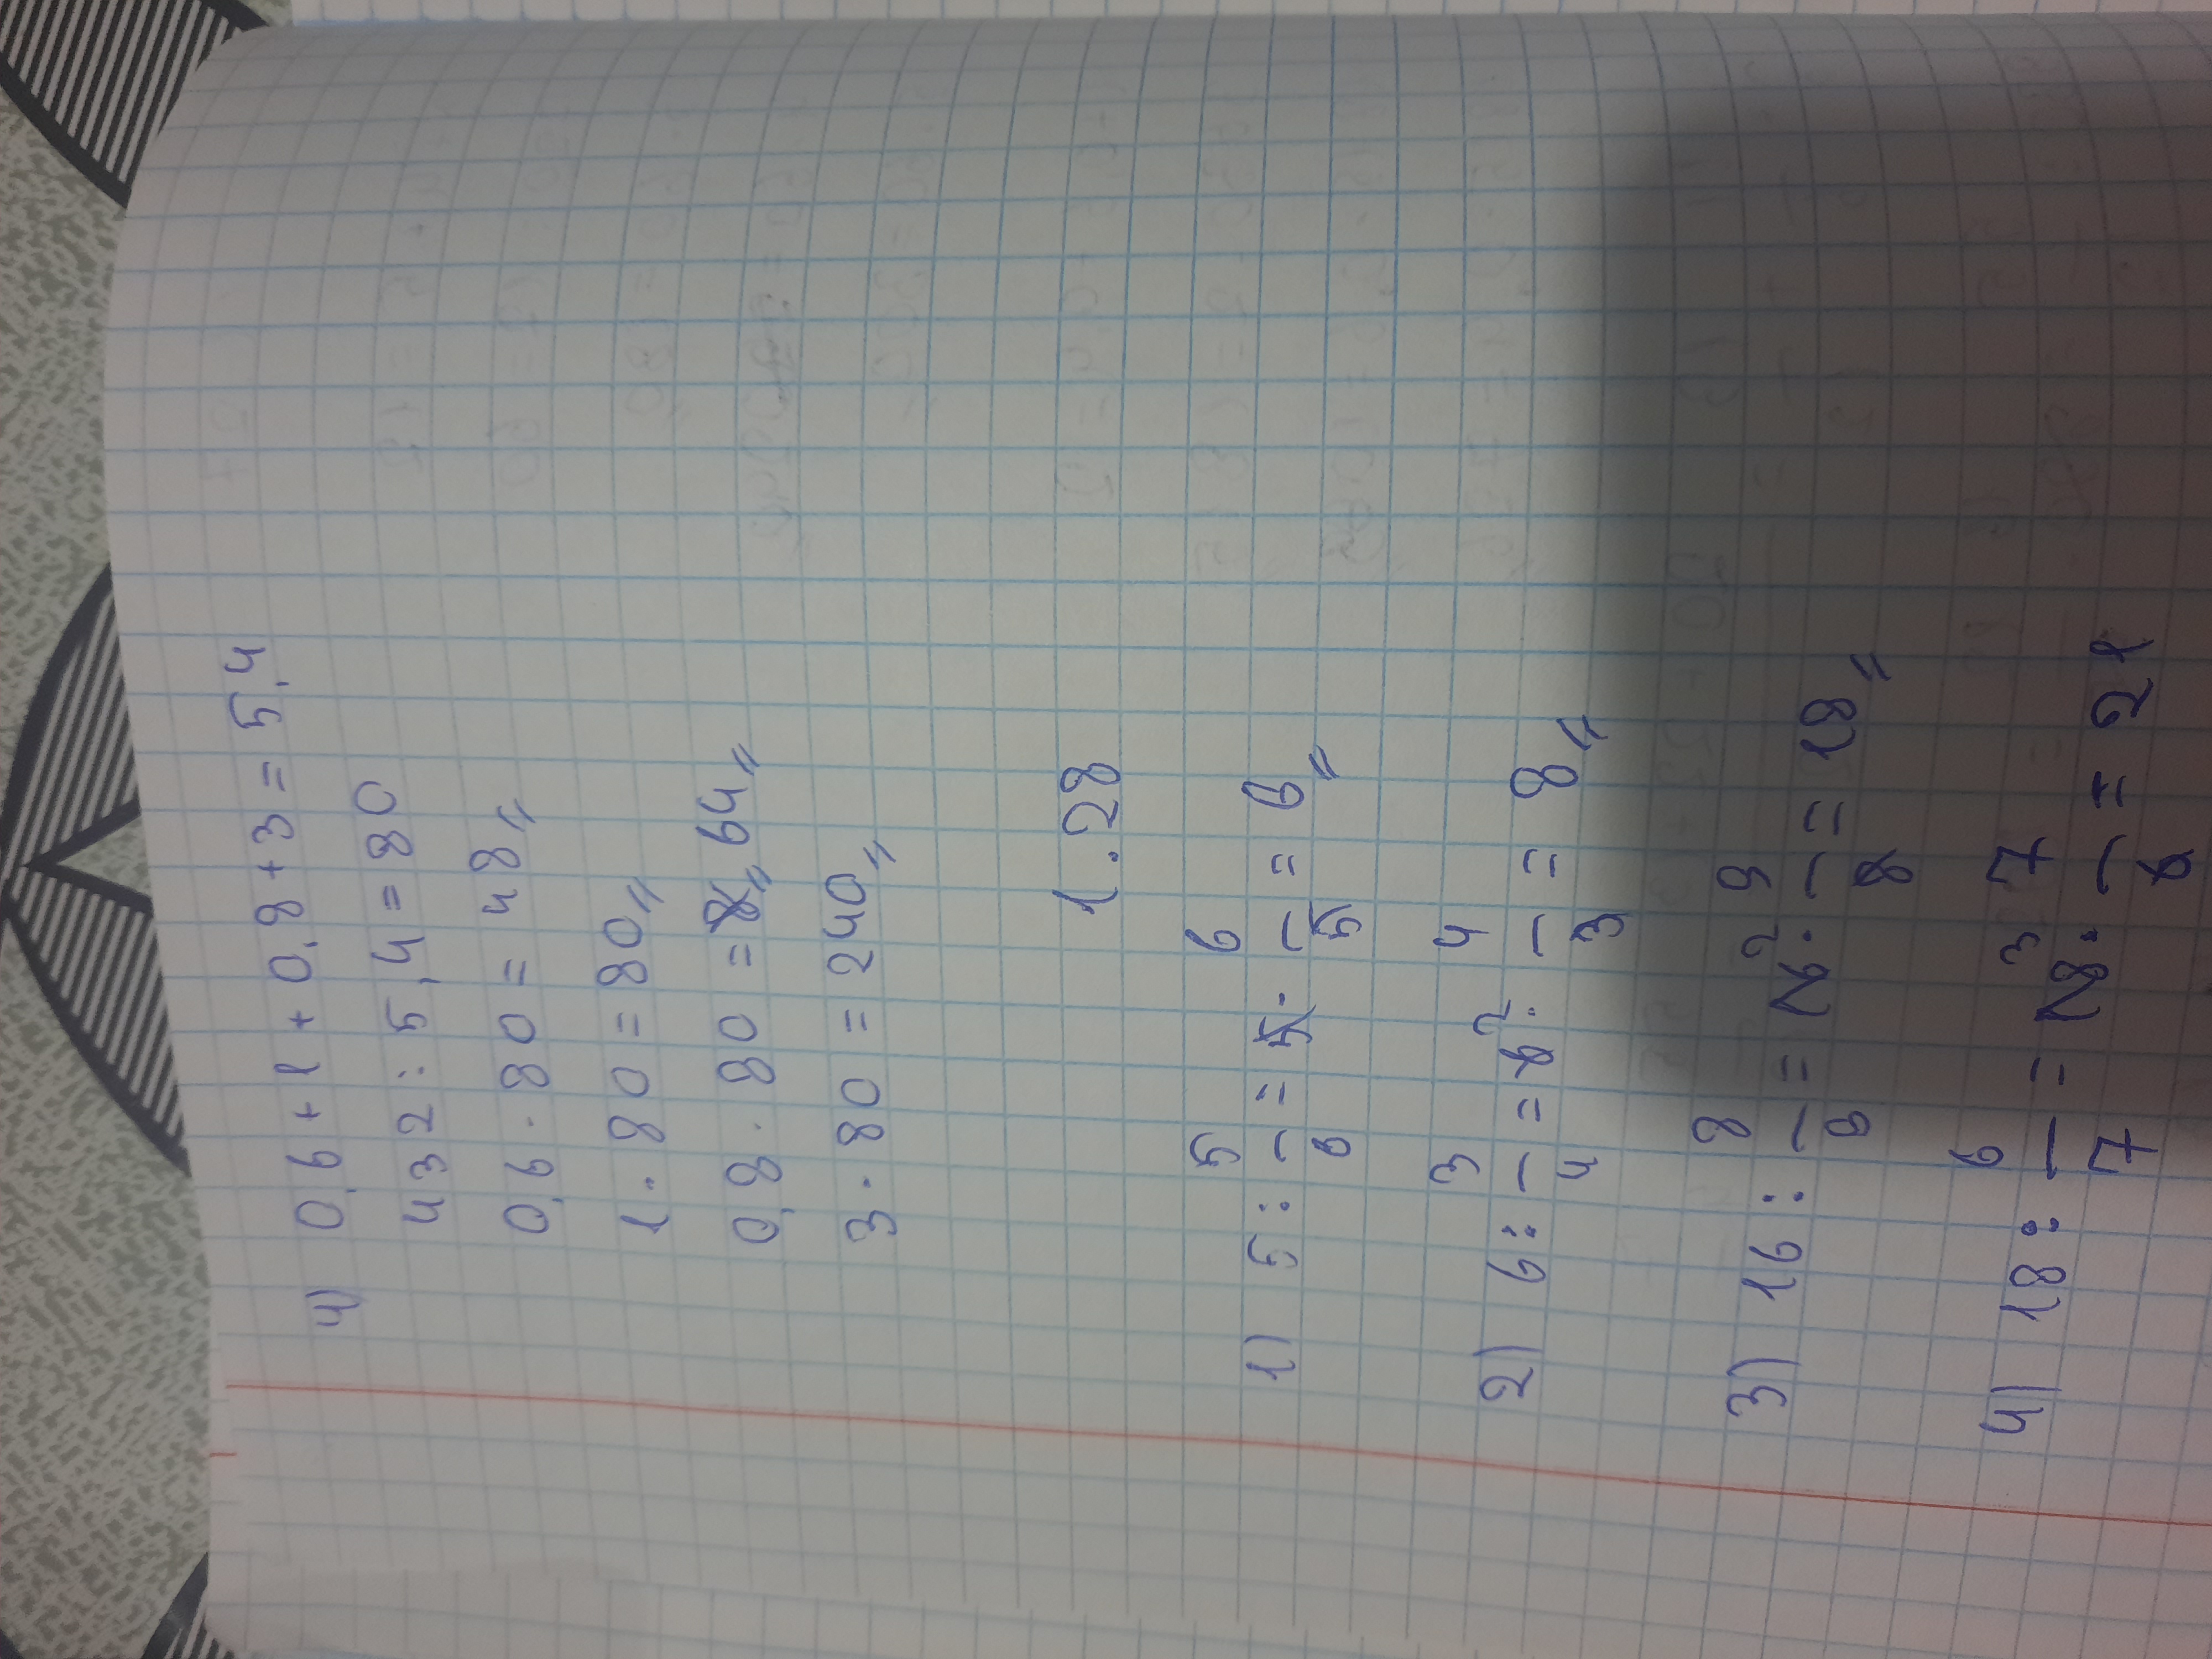 4) 0,6 + 1 + 0,8 + 3 = 5,4
432 : 5,4 = 80
0,6 · 80 = 48//
1 · 80 = 80//
0,8 · 80 = 8// 64//
3 · 80 = 240//
1.28
1) 5 : 5/6 = 5 · 6/5 = 6//
2) 6 : 3/4 = 6 2 · 4/3 = 8//
3) 16 : 8/9 = 16 2 · 9/8 = 18//
4) 18 : 6/7 = 18 3 · 7/6 = 21